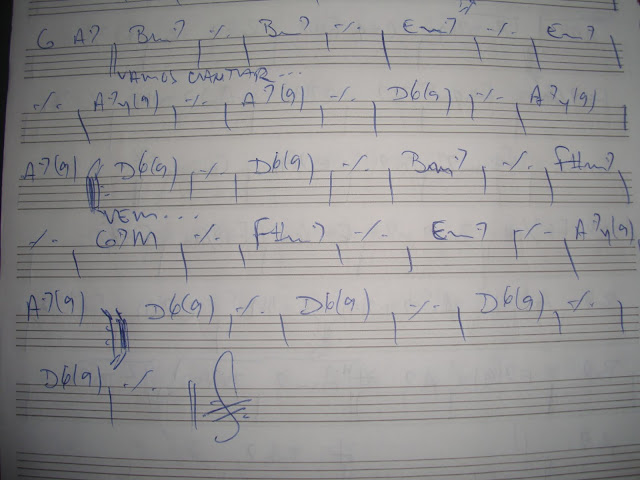 G A7 Bm7 -/- Bm7 -/- Em7 -/- Em7
VAMOS CANTAR...
-/- A74(9) -/- A7(9) -/- D6(9) -/- A74(9)
A7(9) D6(9) -/- D6(9) -/- Bm7 -/- F#m7
VEM...
-/- G7M -/- F#m7 -/- Em7 -/- A74(9)
A7(9) D6(9) -/- D6(9) -/- D6(9) -/-
D6(9) -/-